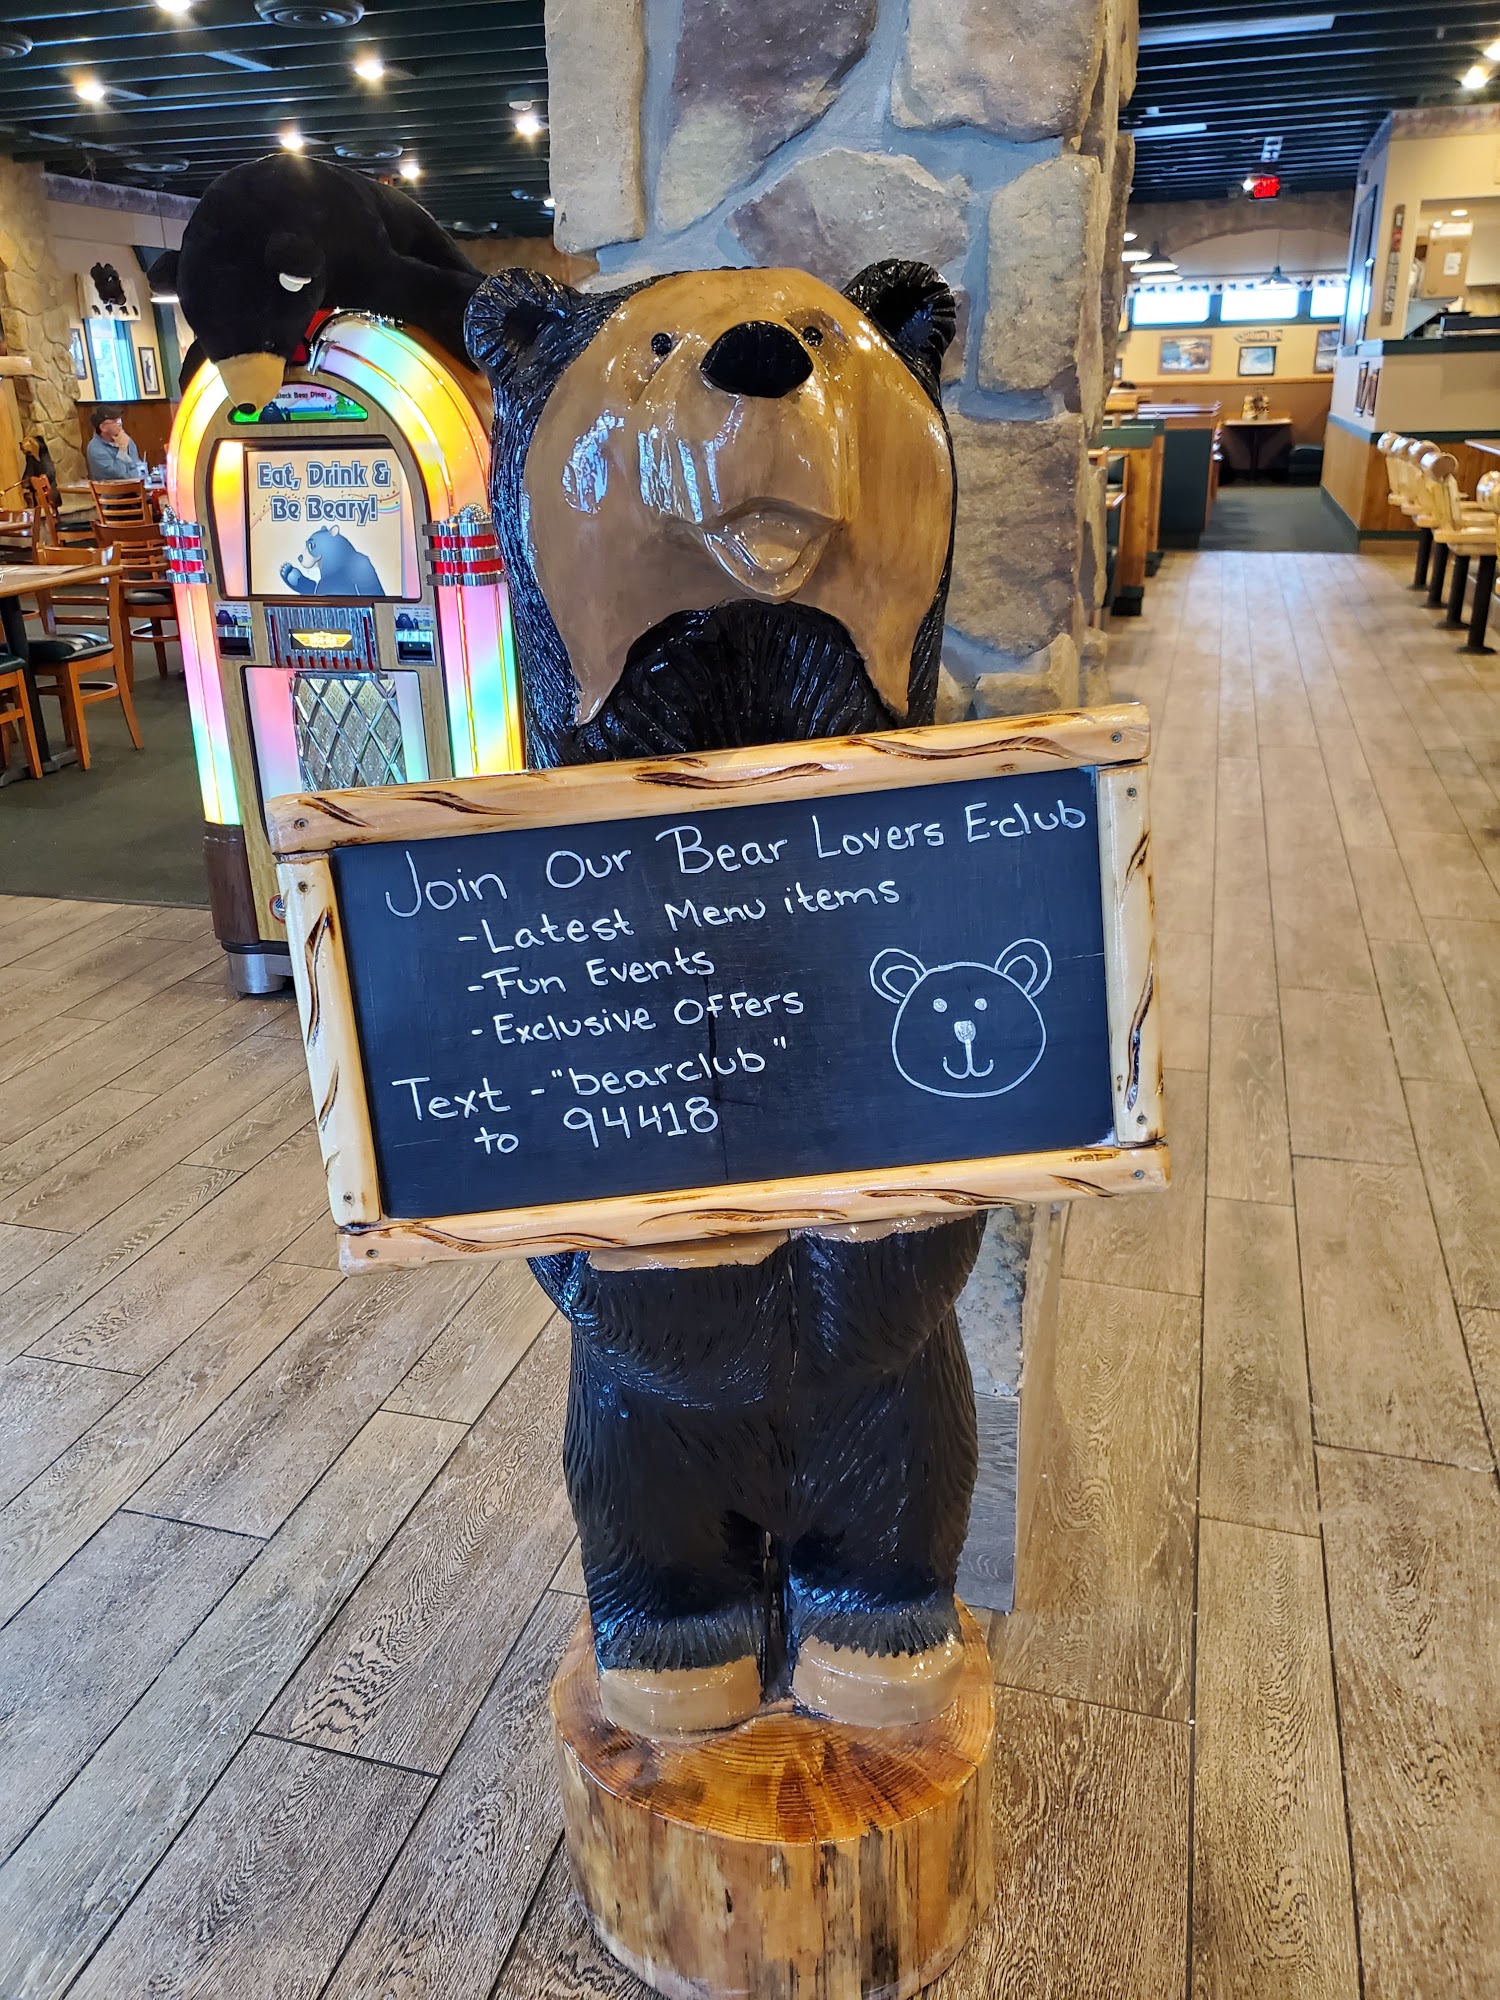 Black Bear Diner
Eat, Drink &
Be Beary!
Join Our Bear Lovers E-club
-Latest Menu items
-Fun Events
-Exclusive Offers
Text -"bearclub"
to 94418